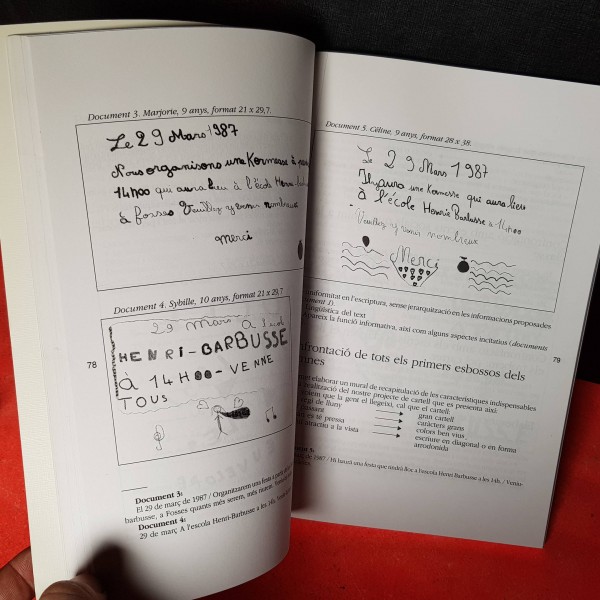 Document 3. Marjorie, 9 anys, format 21 x 29,7.
Le 29 Mars 1987
Nous organisons une Kermesse à
14h00 qui aura lieu à l'école Henri
à fosses Veuillez y venir nombreux
Merci
Document 4. Sybille, 10 anys, format 21 x 29,7
29 mars à
HENRI-BARBUSSE
À 14H00-VENNE
TOUS
78
Document 3:
El 29 de març de 1987 / Organitzarem una festa a
barbusse, a Fosses quants més serem, més riurem.
Document 4:
29 de març, A l'escola Henri-Barbusse a les 14h.
Document 5. Céline, 9 anys, format 28 x 38.
Le 29 Mars 1987
Il y aura une Kermesse qui aura lieu
à l'école Henrie Barbusse à 14h00
Veuillez y venir nombreux
Merci
uniformitat en l'escriptura, sense jerarquització en les informacions proposades
1).
lingüística del text
apareix la funció informativa, així com alguns aspectes incitatius (documents
79
frontació de tots els primers esbossos dels
elaborar un mural de recapitulació de les característiques indispensables
realització del nostre projecte de cartell que es presenta així:
que la gent el llegeixi, cal que el cartell:
de lluny gran cartell
caràcters grans
es té pressa colors ben vius
atractiu a la vista escriure en diagonal o en forma
arrodonida
de 1987 / Hi haurà una festa que tindrà lloc a l'escola Henri Barbusse a les 14h. / Veniu